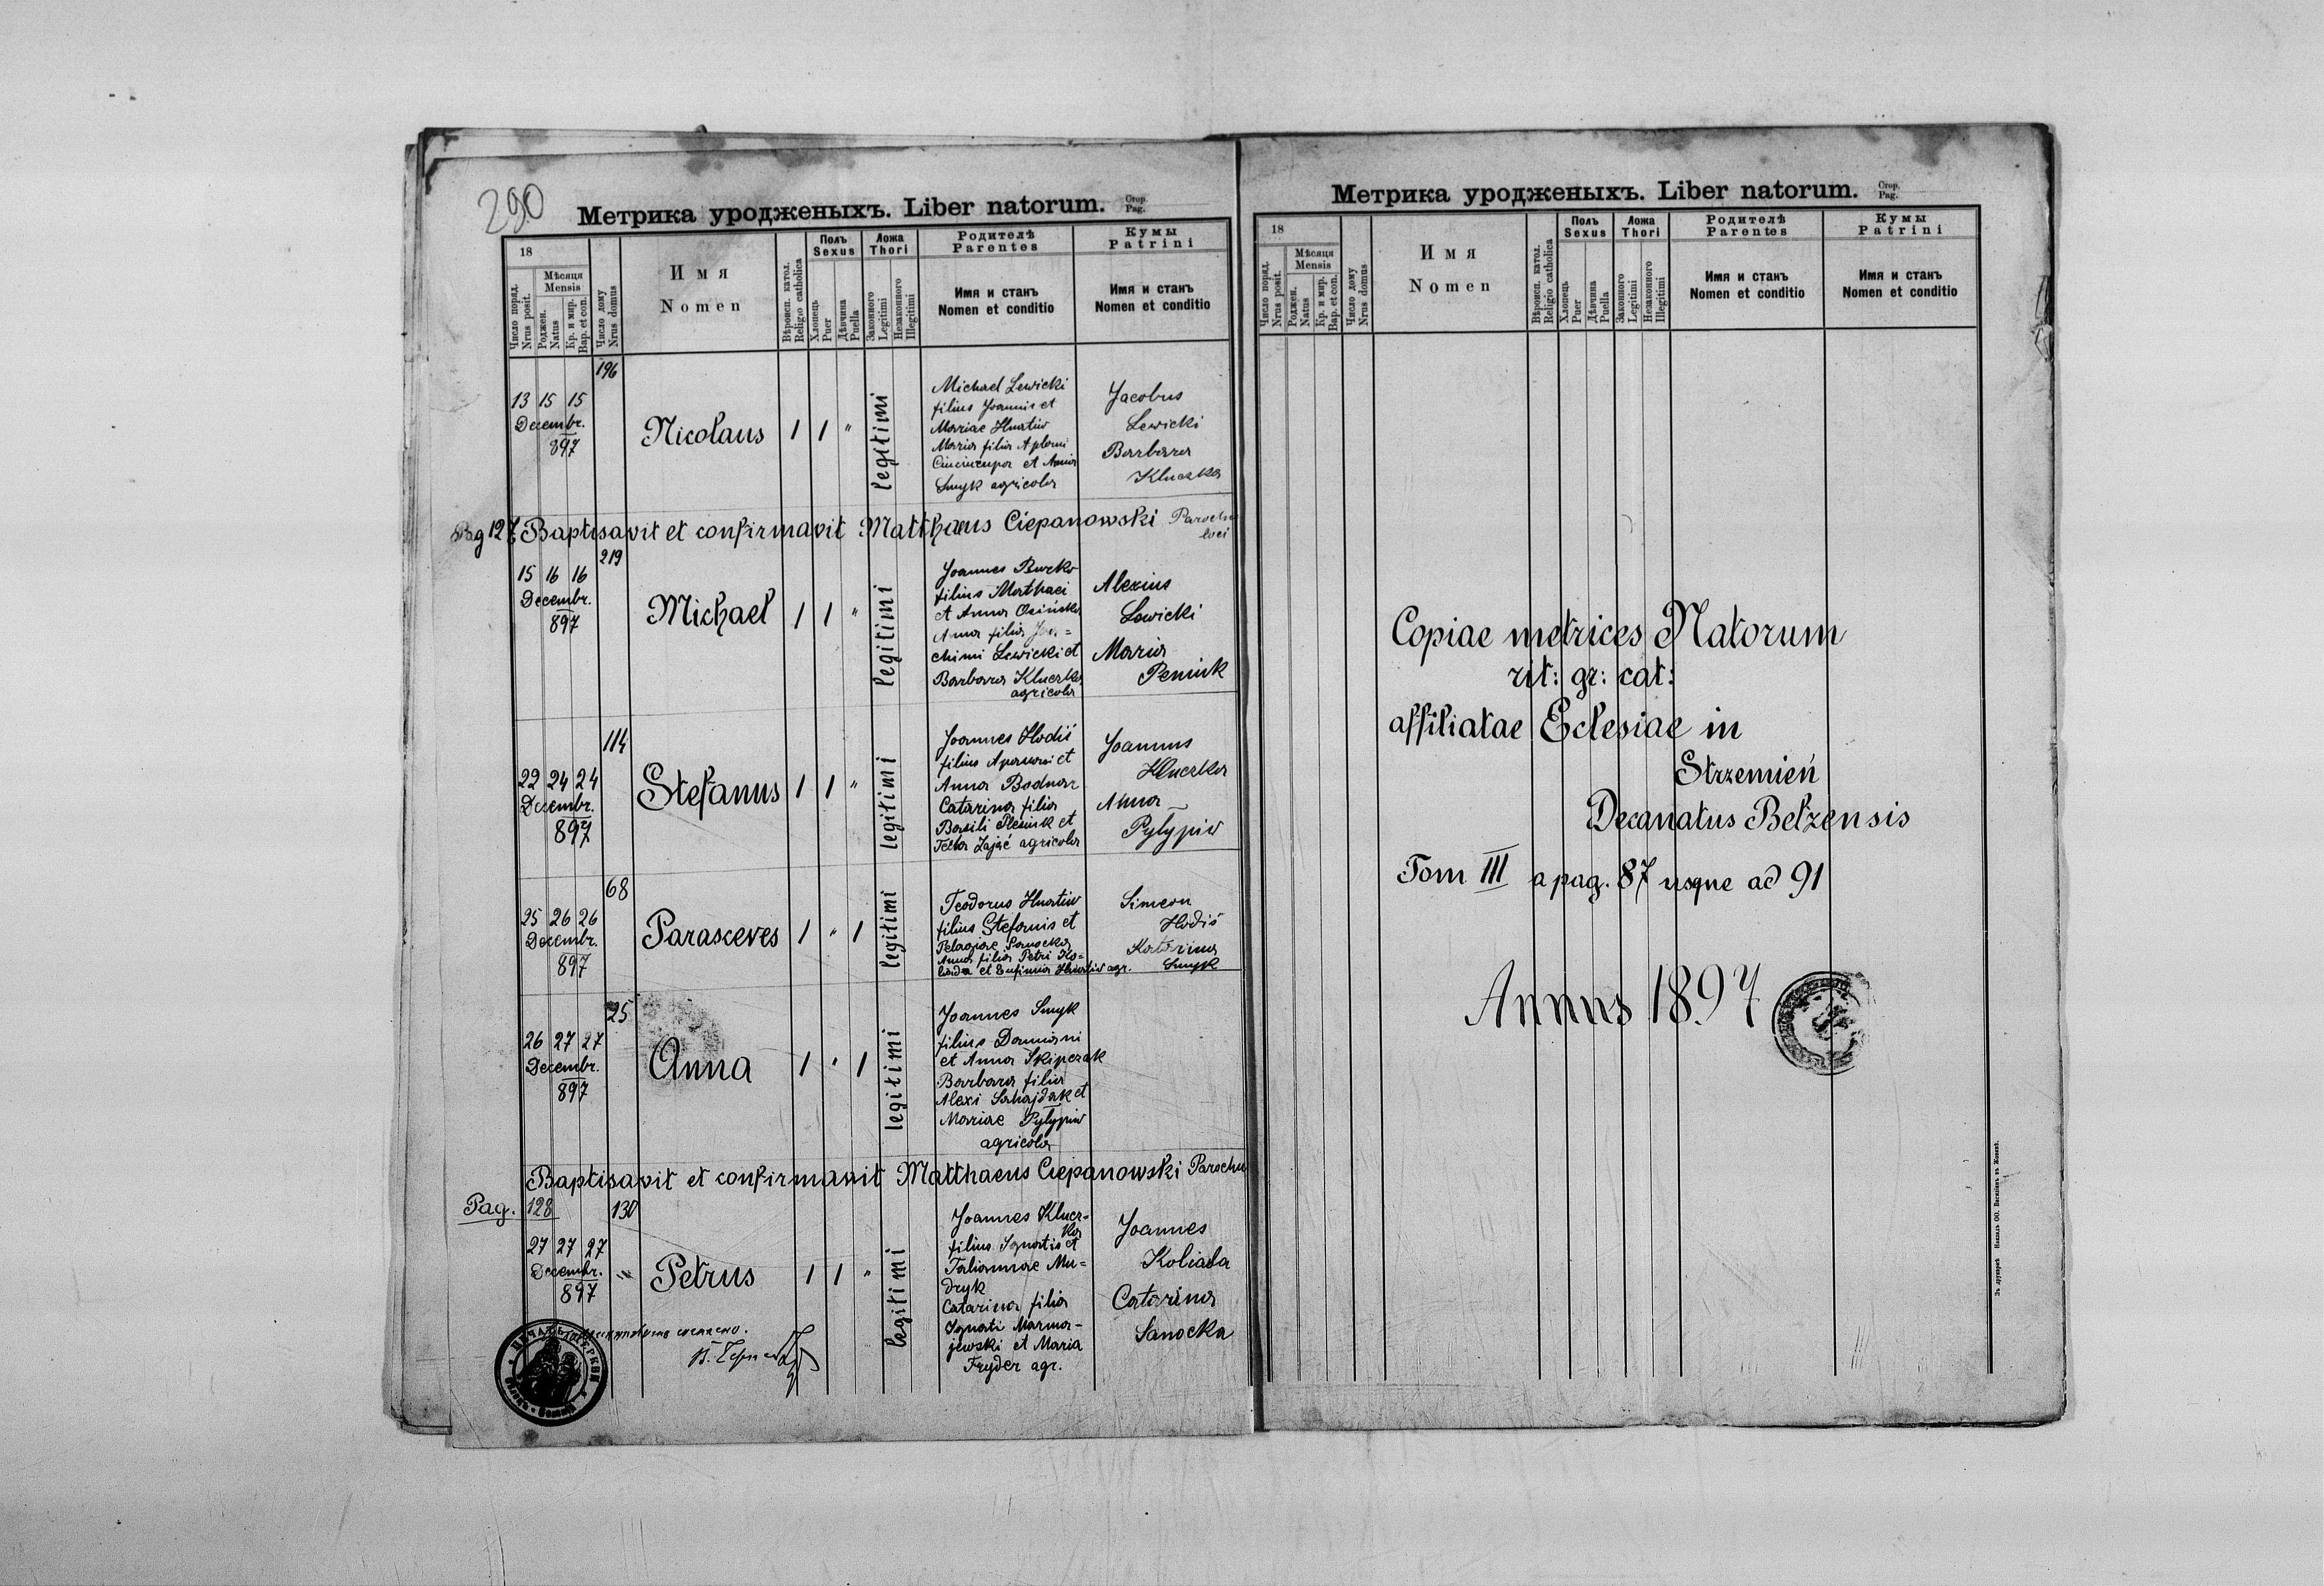 290
Метрика уродженыхъ. Liber natorum. Стор. Pag.
18
Число поряд. Nrus posit.
Мѣсяця Mensis
Роджен. Natus
Кр. и мир. Bap. et con.
Число дому Nrus domus
Имя
Nomen
Вѣроисп. катол. Religio catholica
Полъ Sexus
Хлопець Puer
Дѣвчина Puella
Ложа Thori
Законного Legitimi
Незаконного Illegitimi
Родителѣ
Parentes
Имя и станъ
Nomen et conditio
Кумы
Patrini
Имя и станъ
Nomen et conditio
196
13 15 15
Decembr.
897
Nicolaus 1 1 "
legitimi
Michael Lewicki
filius Joannis et
Mariae Hnatiw
Maria filia
et Anna
Smyk agricola
Jacobus
Lewicki
Barbara
Kluczka
Pag 127 Baptisavit et confirmavit Matthaeus Ciepanowski Paroch
loci
219
15 16 16
Decembr.
897
Michael 1 1 "
legitimi
Joannes Burko
filius Mathaei
et Anna Osińska
Anna filia Joa=
chimi Lewicki et
Barbara Kluczka
agricola
Alexius
Lewicki
Maria
Peniuk
114
22 24 24
Decembr.
897
Stefanus 1 1 "
legitimi
Joannes Hodiś
filius et
Anna Bodnar
Catarina filia
Basili et
Tekla Zająć agricola
Joannes
Kluczka
Anna
Pylypiw
68
25 26 26
Decembr.
897
Parasceves 1 " 1
legitimi
Teodorus Hnatiw
filius Stefanis et
Pelagiae Sanocka
Anna filia Petri Ko=
liada et Eufimia Hnatiw agr.
Simeon
Hodiś
Katarina
Smyk
25
26 27 27
Decembr.
897
Anna 1 " 1
legitimi
Joannes Smyk
filius Damiani
et Anna Skipczak
Barbara filia
Alexi Sahajdak et
Mariae Pylypiw
agricola
Baptisavit et confirmavit Matthaeus Ciepanowski Parochu
Pag. 128
130
27 27 27
Decembr.
897
Petrus 1 1 "
legitimi
Joannes Klucz-
ka
filius Ignatis et
Talianae Mu=
dryk
Catarina filia
Ignati Marma-
jewski et Maria
Fryder agr.
Joannes
Koliada
Catarina
Sanocka
Метрика уродженыхъ. Liber natorum. Стор. Pag.
18
Число поряд. Nrus posit.
Мѣсяця Mensis
Роджен. Natus
Кр. и мир. Bap. et con.
Число дому Nrus domus
Имя
Nomen
Вѣроисп. катол. Religio catholica
Полъ Sexus
Хлопець Puer
Дѣвчина Puella
Ложа Thori
Законного Legitimi
Незаконного Illegitimi
Родителѣ
Parentes
Имя и станъ
Nomen et conditio
Кумы
Patrini
Имя и станъ
Nomen et conditio
Copiae metrices Natorum
rit: gr: cat:
affiliatae Eclesiae in
Strzemień
Decanatus Belzensis
Tom III a pag. 87 usque ad 91
Annus 1897